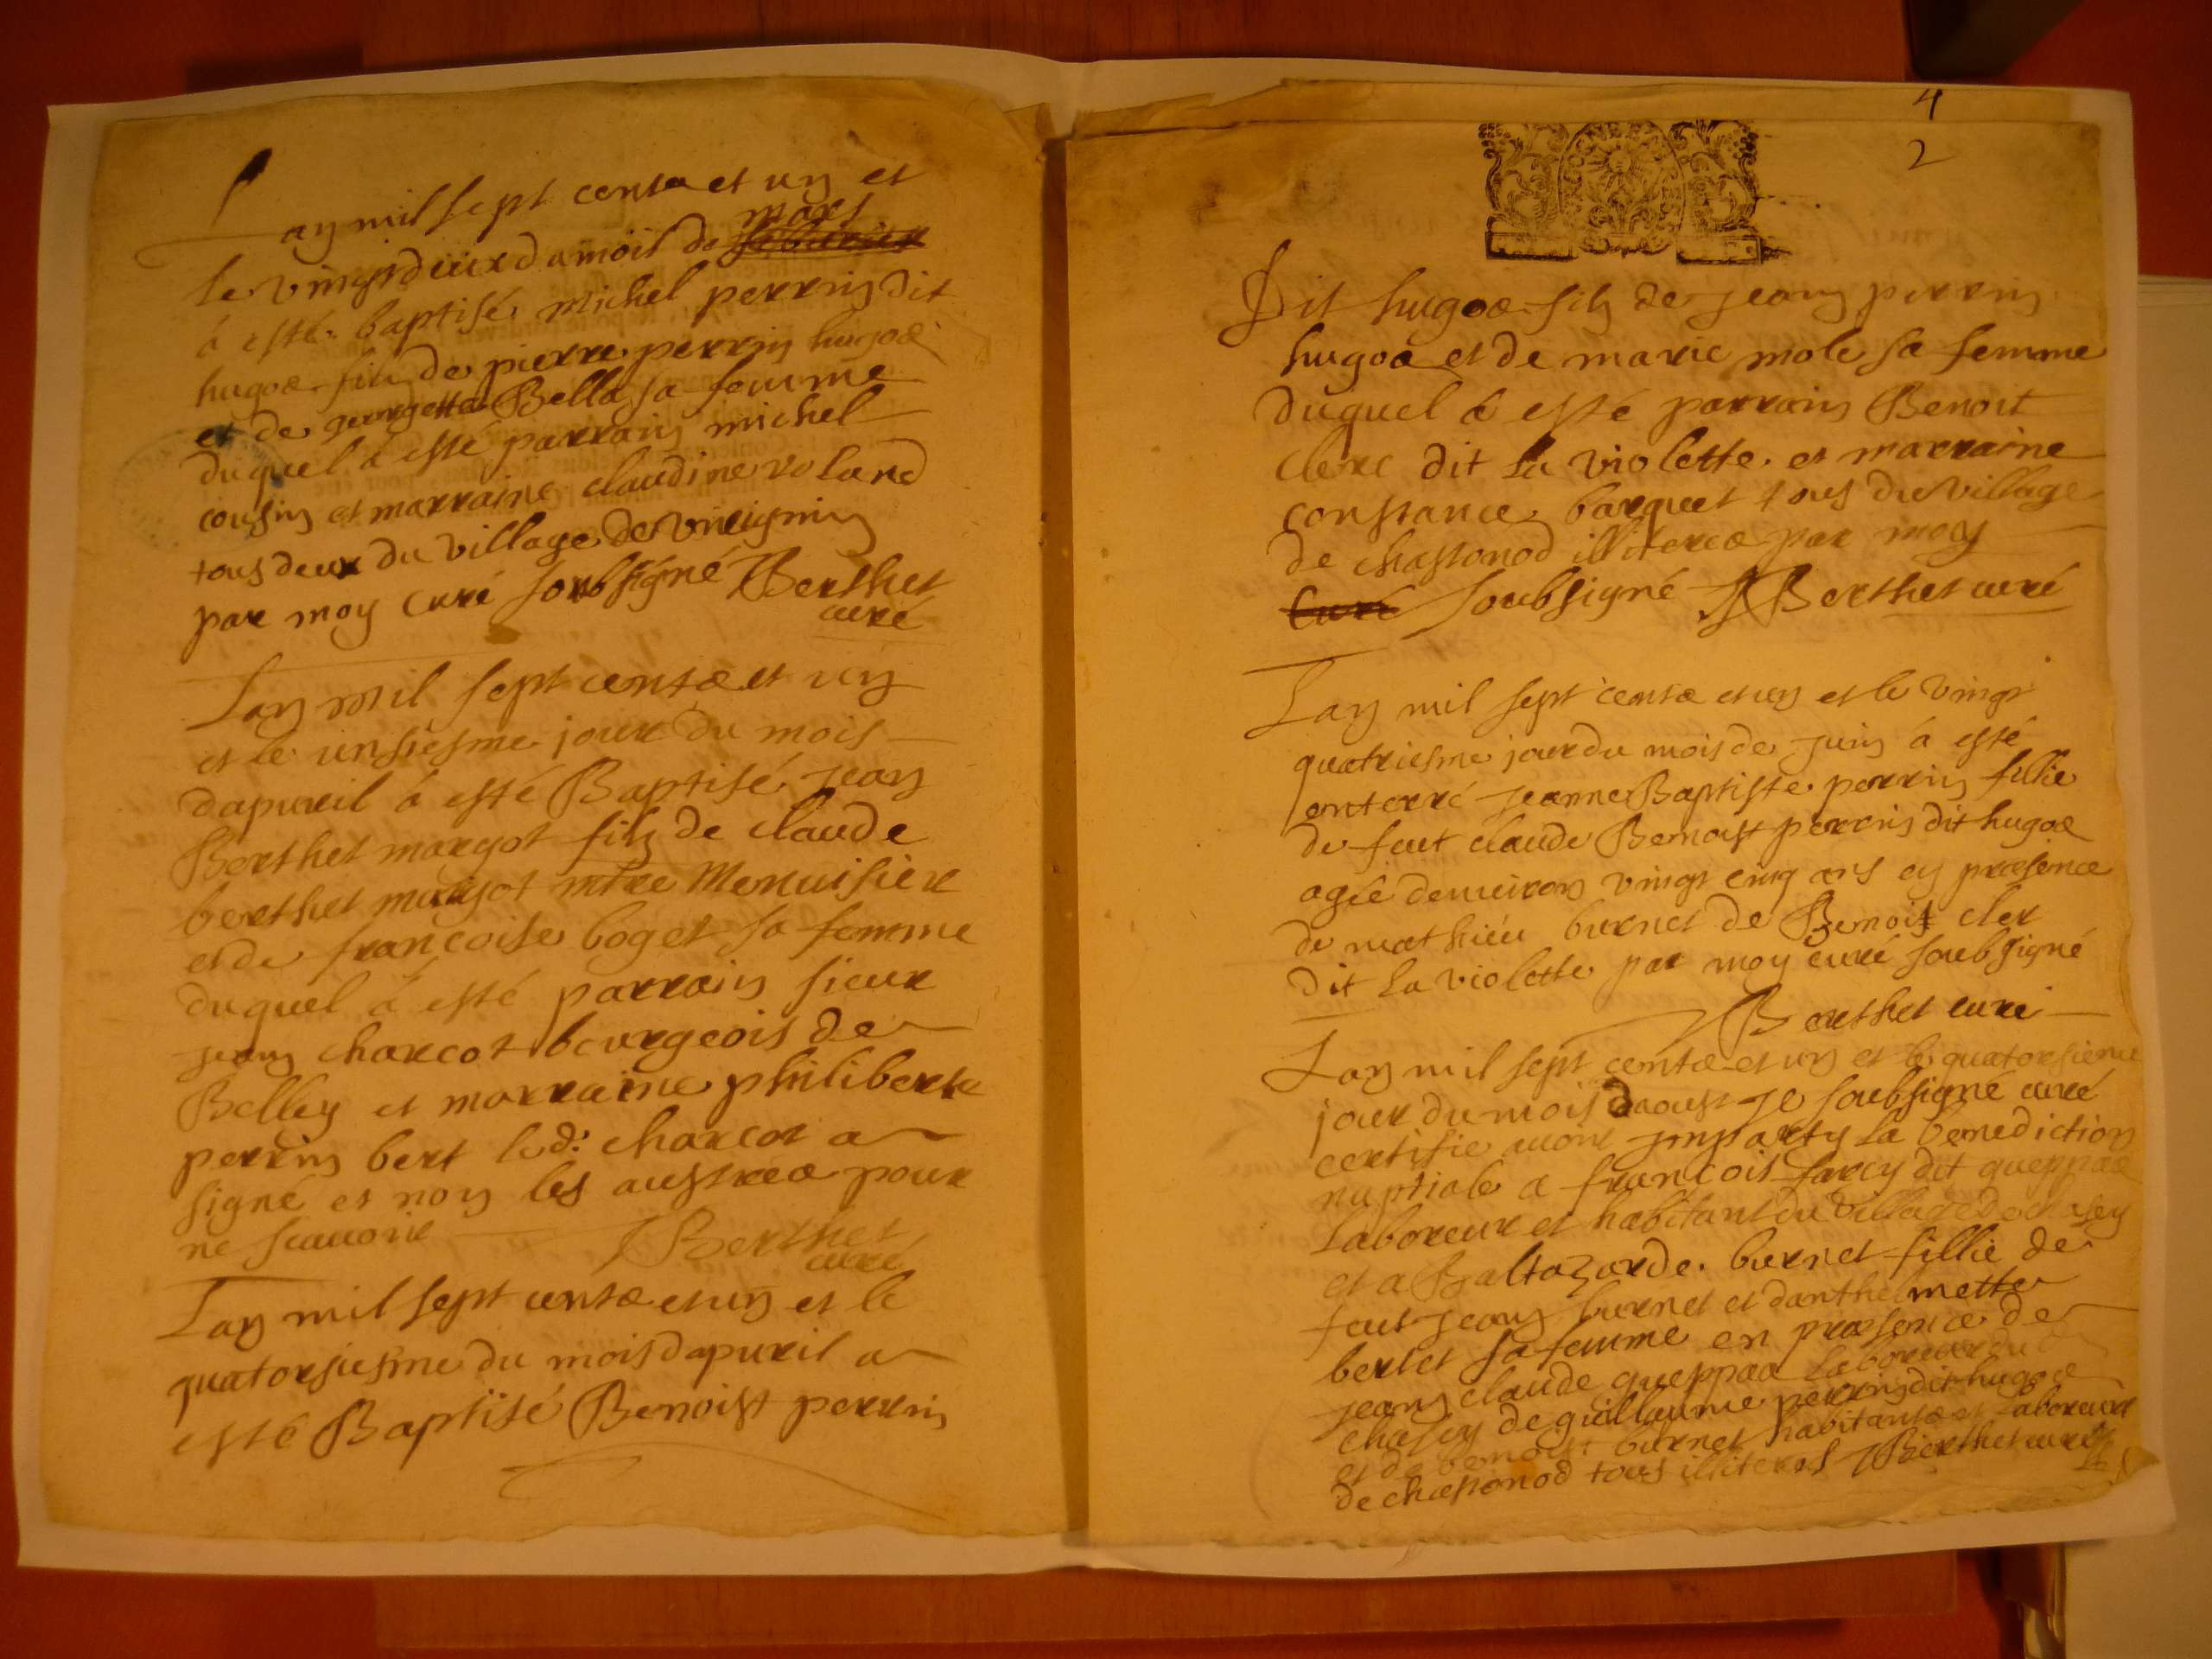 Lan mil sept centz et un et
le vingt deux du mois de mars febvrier
à esté baptisé michel perrin dit
hugoz filz de pierre perrin hugoz
et de georgette Bella sa femme
duquel à esté parrain michel
cousin et marraine claudine voland
tous deux du village de vireignin
par moy curé soubsigné Berthet
curé
Lan mil sept centz et un
et le unsiesme jour du mois
dapvril à esté Baptisé jean
Berthet margot filz de claude
berthet margot mtre Menuisier
et de francoise boget sa femme
duquel à esté parrain sieur
jean charcot bourgeois de
Belley et marraine philiberte
perrin bert led: charcot a
signé et non les austrez pour
ne scavoir Berthet
curé
Lan mil sept centz et un et le
quatorsiesme du mois dapvril a
esté Baptisé Benoist perrin
4
2
Dit hugoz filz de jean perrin
hugoz et de marie mole sa femme
duquel à esté parrain Benoit
clerc dit la violette et marraine
constance barquet tous du village
de chastonod illiterez par moy
curé soubsigné Berthet curé
Lan mil sept centz et un et le vingt
quatriesme jour du mois de juin à esté
enterré jeanne Baptiste perrin fillie
de feut claude Benoist perrin dit hugoz
agée denviron vingt cinq ans en presence
de mathieu burnet de Benoist cler
dit la violette par moy curé soubsigné
Berthet curé
Lan mil sept centz et un et le quatorsieme
jour du mois daoust je soubsigné curé
certifie avoir jmparty la benediction
nuptiale a francois farcy dit queppaz
laboreur et habitant du village de chasey
et a Baltazarde burnet fillie de
feut jean burnet et danthelmette
bertet sa femme en presence de
jean claude queppaz laboreur du
chasey de guillaume perrin dit hugoz
et de benoist burnet habitantz et laboreurs
de chastonod tous illiteres Berthet curé